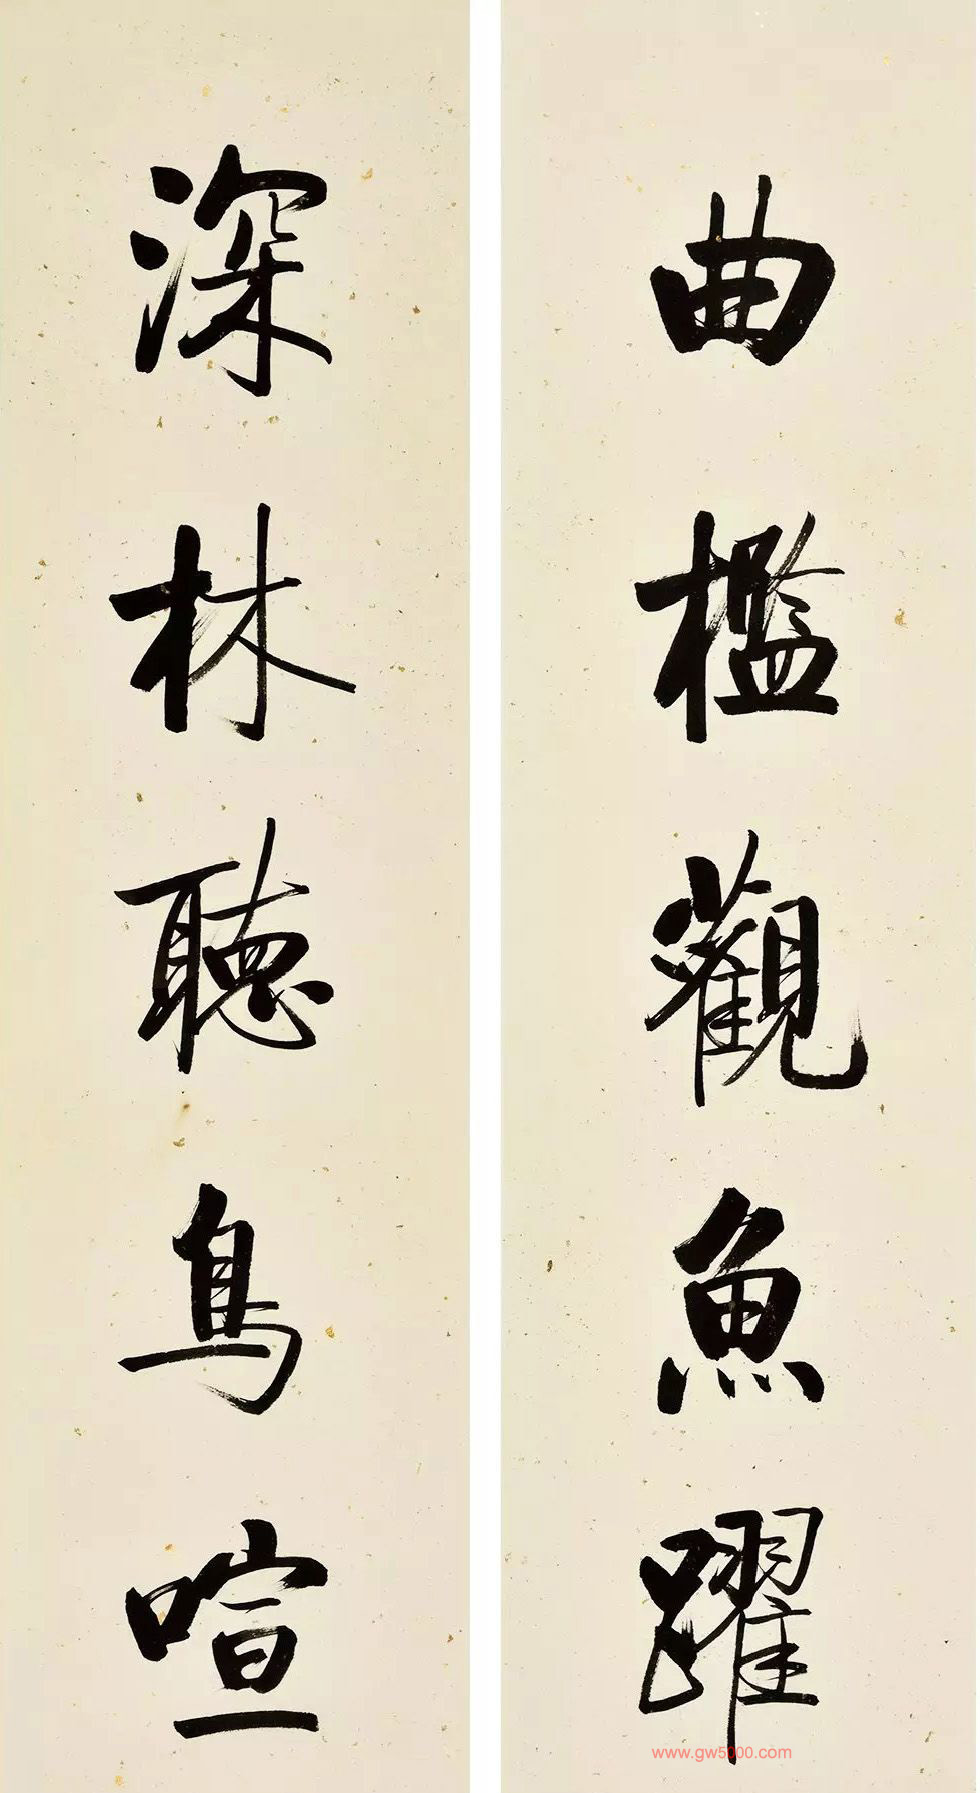 曲檻觀魚躍
深林聽鳥喧
www.gw5000.com